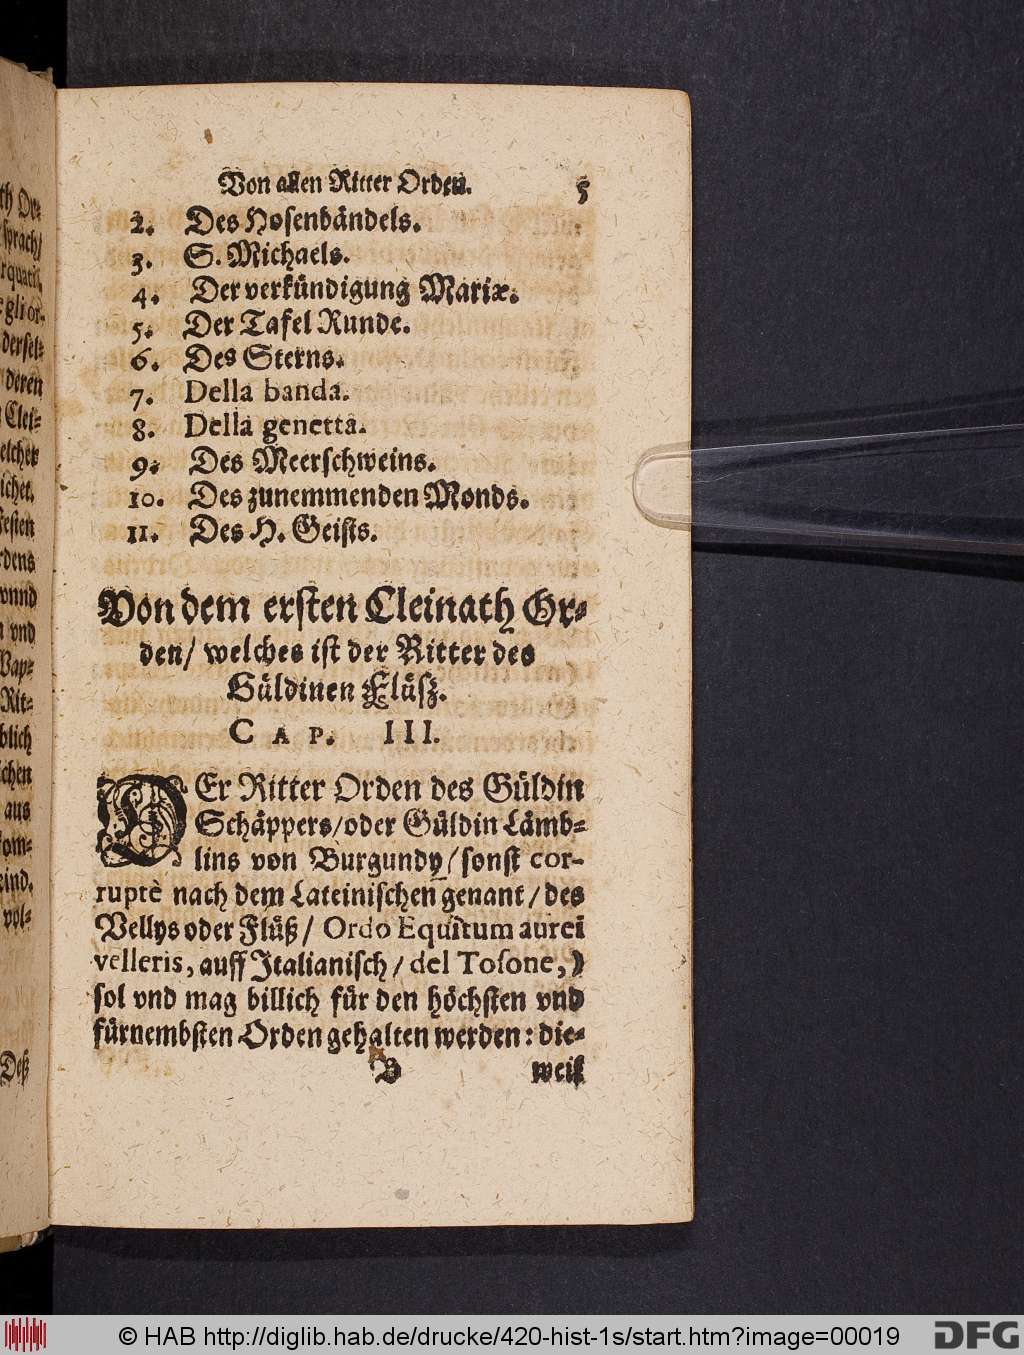 Von allen Ritter Orden. 5
2. Des Hosenbändels.
3. S. Michaels.
4. Der verkündigung Mariæ.
5. Der Tafel Runde.
6. Des Sterns.
7. Della banda.
8. Della genetta.
9. Des Meerschweins.
10. Des zunemmenden Monds.
11. Des H. Geists.
Von dem ersten Cleinath Or-
den/ welches ist der Ritter des
Güldinen Flüsz.
CAP. III.
DEr Ritter Orden des Güldin
Schäppers/oder Güldin Lämb-
lins von Burgundy/sonst cor-
ruptè nach dem Lateinischen genant/des
Vellys oder Flüß/ Ordo Equitum aurei
velleris, auff Italianisch/ del Tosone,)
sol vnd mag billich für den höchsten vnd
fürnembsten Orden gehalten werden: die-
B weil
sprach/
gli or-
dersel-
deren
Clei-
vnnd
vnd
Rit-
aus
vol-
Deß
© HAB http://diglib.hab.de/drucke/420-hist-1s/start.htm?image=00019
DFG